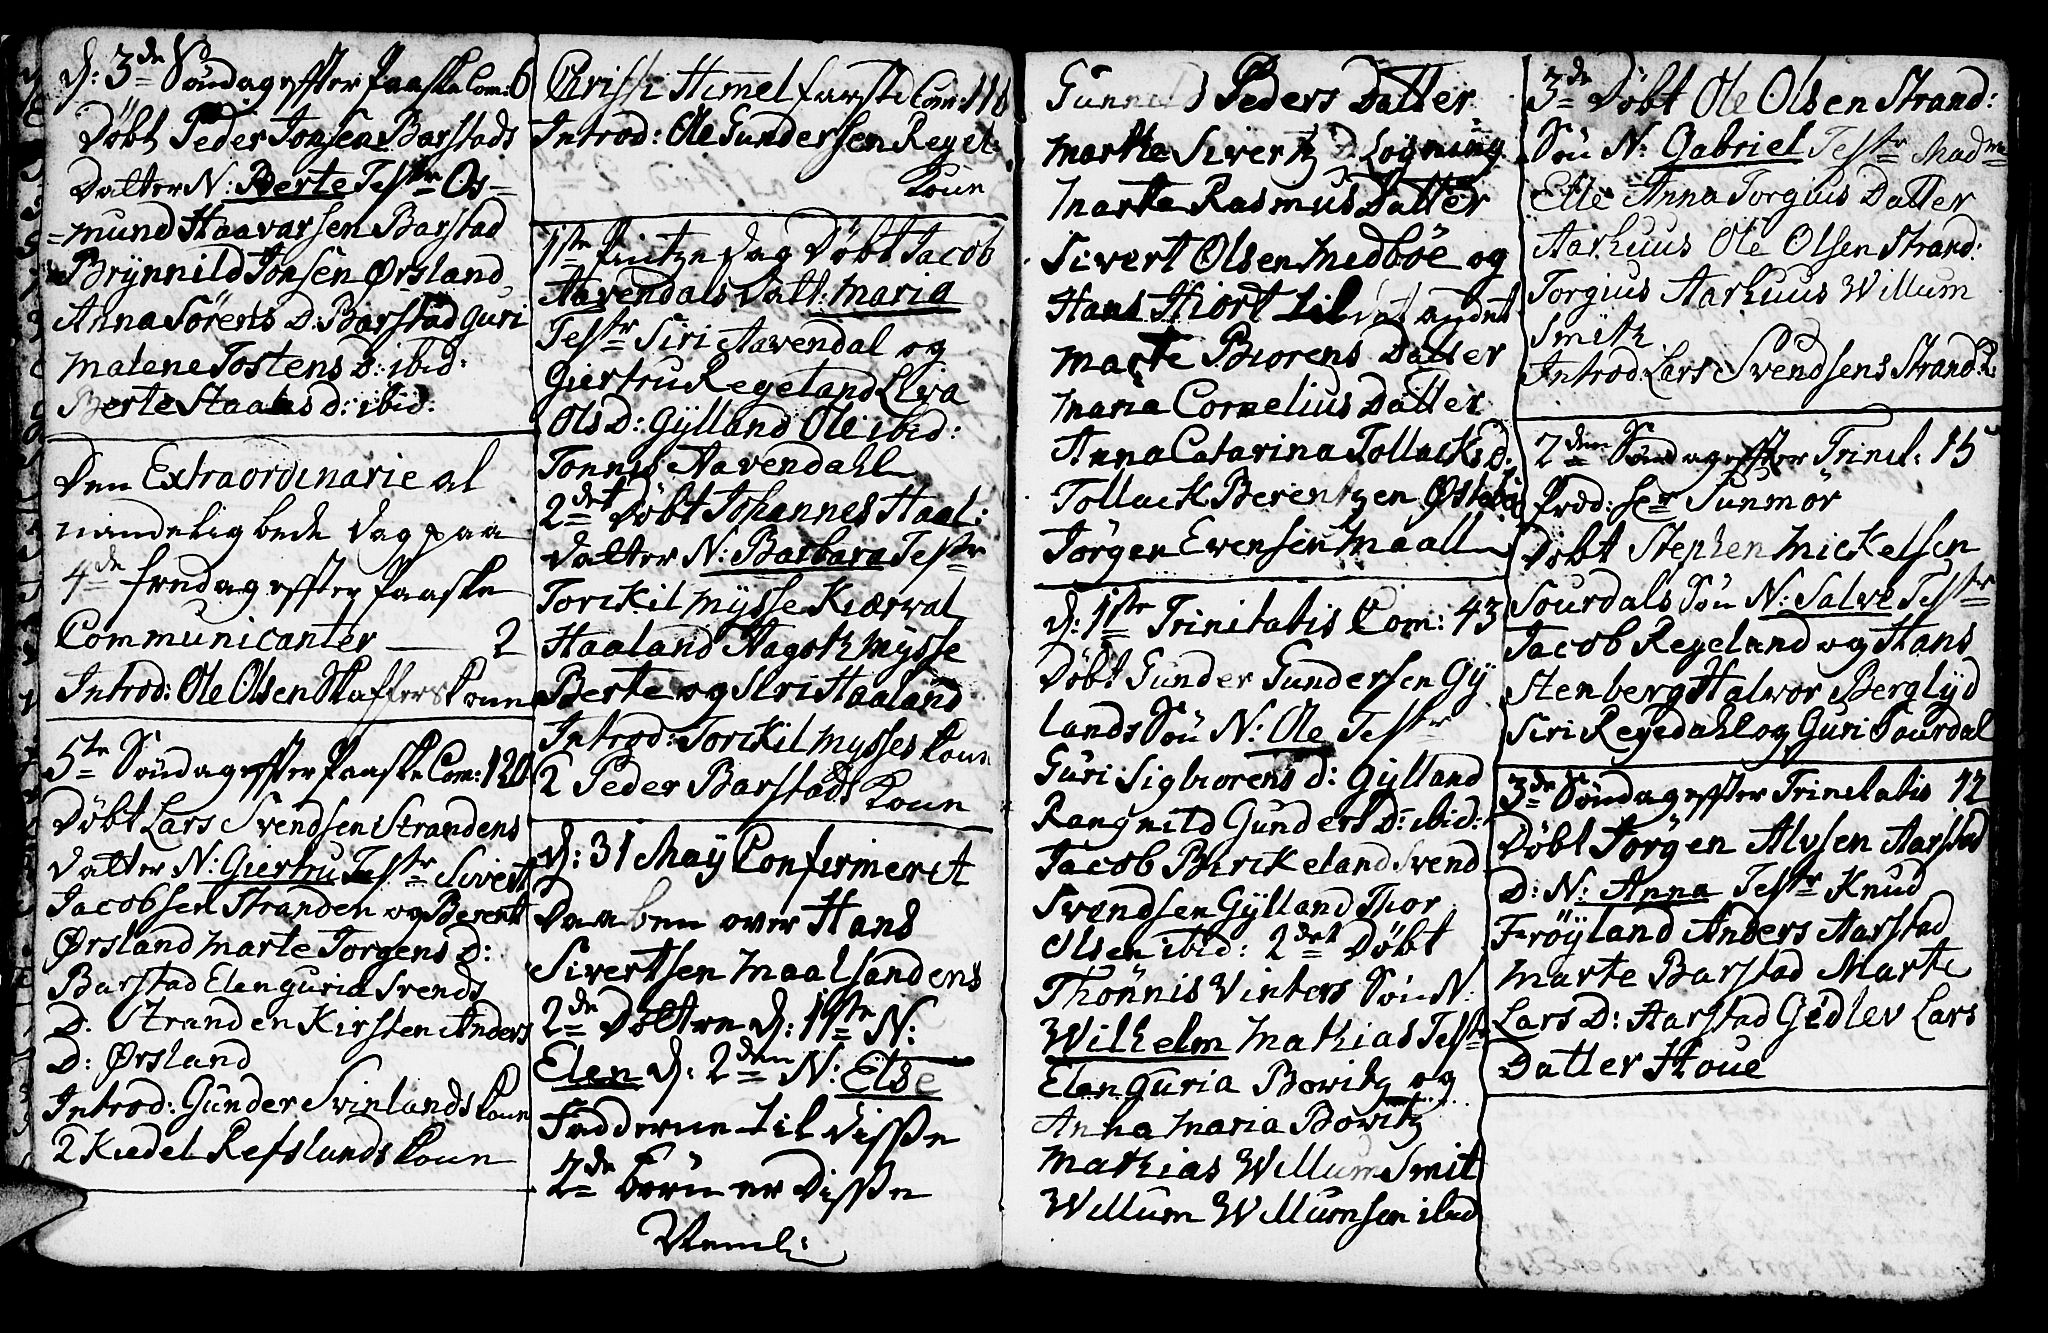 d: 3de Söndag effter Paaske Com: 6
Döbt Peder Jonsen Barstads
Datter N: Berte Testre Os=
=mund Haavarsen Barstad
Brÿnnild Jonsen Ørsland
Anna Sörens D: Barstad Guri
Malene Tostens D: ibid:
Berte Staales d: ibid:
Den Extraordinarie al
mindelig bede dag paa
4de fredag effter Paaske
Communicanter — 2
Introd: Ole Olsen Skaffers Kone
5te Söndag effter Paaske Com: 120
Döbt Lars Svendsen Strandens
Datter N: Giertru Testr Sivert
Jacobsen Stranden og Berent
Ørsland Marte Torgens D:
Barstad Elenguria Svends
D. Stranden Kirsten Anders
D: Ørsland
Introd: Gunder Svinlands Kone
2 Kiedel Refslunds Kone
Christi Himmelfarts Com: 118
Introd: Ole Gundersen Regel:
Kone
1ste Pintze dag Döbt Jacob
Aavendals Datt: Maria
Testr Siri Aavendal og
Giertru Regeland Eliva
Ols D: Gÿlland Ole ibid:
Tonnes Aavendahl
2det Döbt Johannes Haal:
Datter N: Barbara Testr
Torckil Mÿsse Kiærval
Haaland Aagoth Mÿsse
Berte og Siri Haaland
Introd: Torckil Mysses Kone
2 Peder Barstads Kone
d: 31 Maÿ Confirmeret
Daaben over Hans
Sivertsen Maalsandens
2de Döttre d: 1ste N:
Elen d: 2den N: Else
Fadderne til disse
2de börn er disse
Neml:
Gunnild Peders Datter
Marthe Sivertz D Logning
Marte Rasmus Datter
Sivert Olsen Medböe og
Hans Hiort til det andet
Marte Biorens Datter
Maria Cornelius Datter
Anna Catarina Tollacks d.
Tollack Berentzen Østebö
Jörgen Evensen Maall
d: 1ste Trinitatis Com: 43
Döbt Gunder Gundersen Gÿ
lands Sön N: Ole Testr
Guri Sigbiorens d: Gÿlland
Rangnild Gunders D: ibid:
Jacob Birckeland Svend
Svendsen Gÿlland Thor
Olsen ibid: 2det Döbt
Thönnis Vinters Sön N:
Wilhelm Mathias Testr
Elenguria Bowitz og
Anna Maria Bowitz
Mathias Willum Smit
Willum Willumsen ibid
3de Döbt Ole Olsen Strand:
Sön N: Gabriel Testr Madme
Else Anna Torgius Datter
Aarhuus Ole Olsen Strand:
Torgius Aarhuus Willum
Smith
Introd: Lars Svendsens Strand: K.
2den Söndag effter Trinit: 15
Prod: Hr Sunmör
Döbt Stephen Mickelsen
Sourdals Sön N: Salve Testr
Jacob Regeland og Hans
Stenberg Halvor Berglÿd
Siri Regedahl og Guri Sourdal
3de Söndag effter Trinitatis 42
Döbt Jörgen Alvsen Aarstad
D: N: Anna Testr Knud
Fröÿland Anders Aarstad
Marte Barstad Marte
Lars D: Aarstad Gidlev Lars
Datter Houe